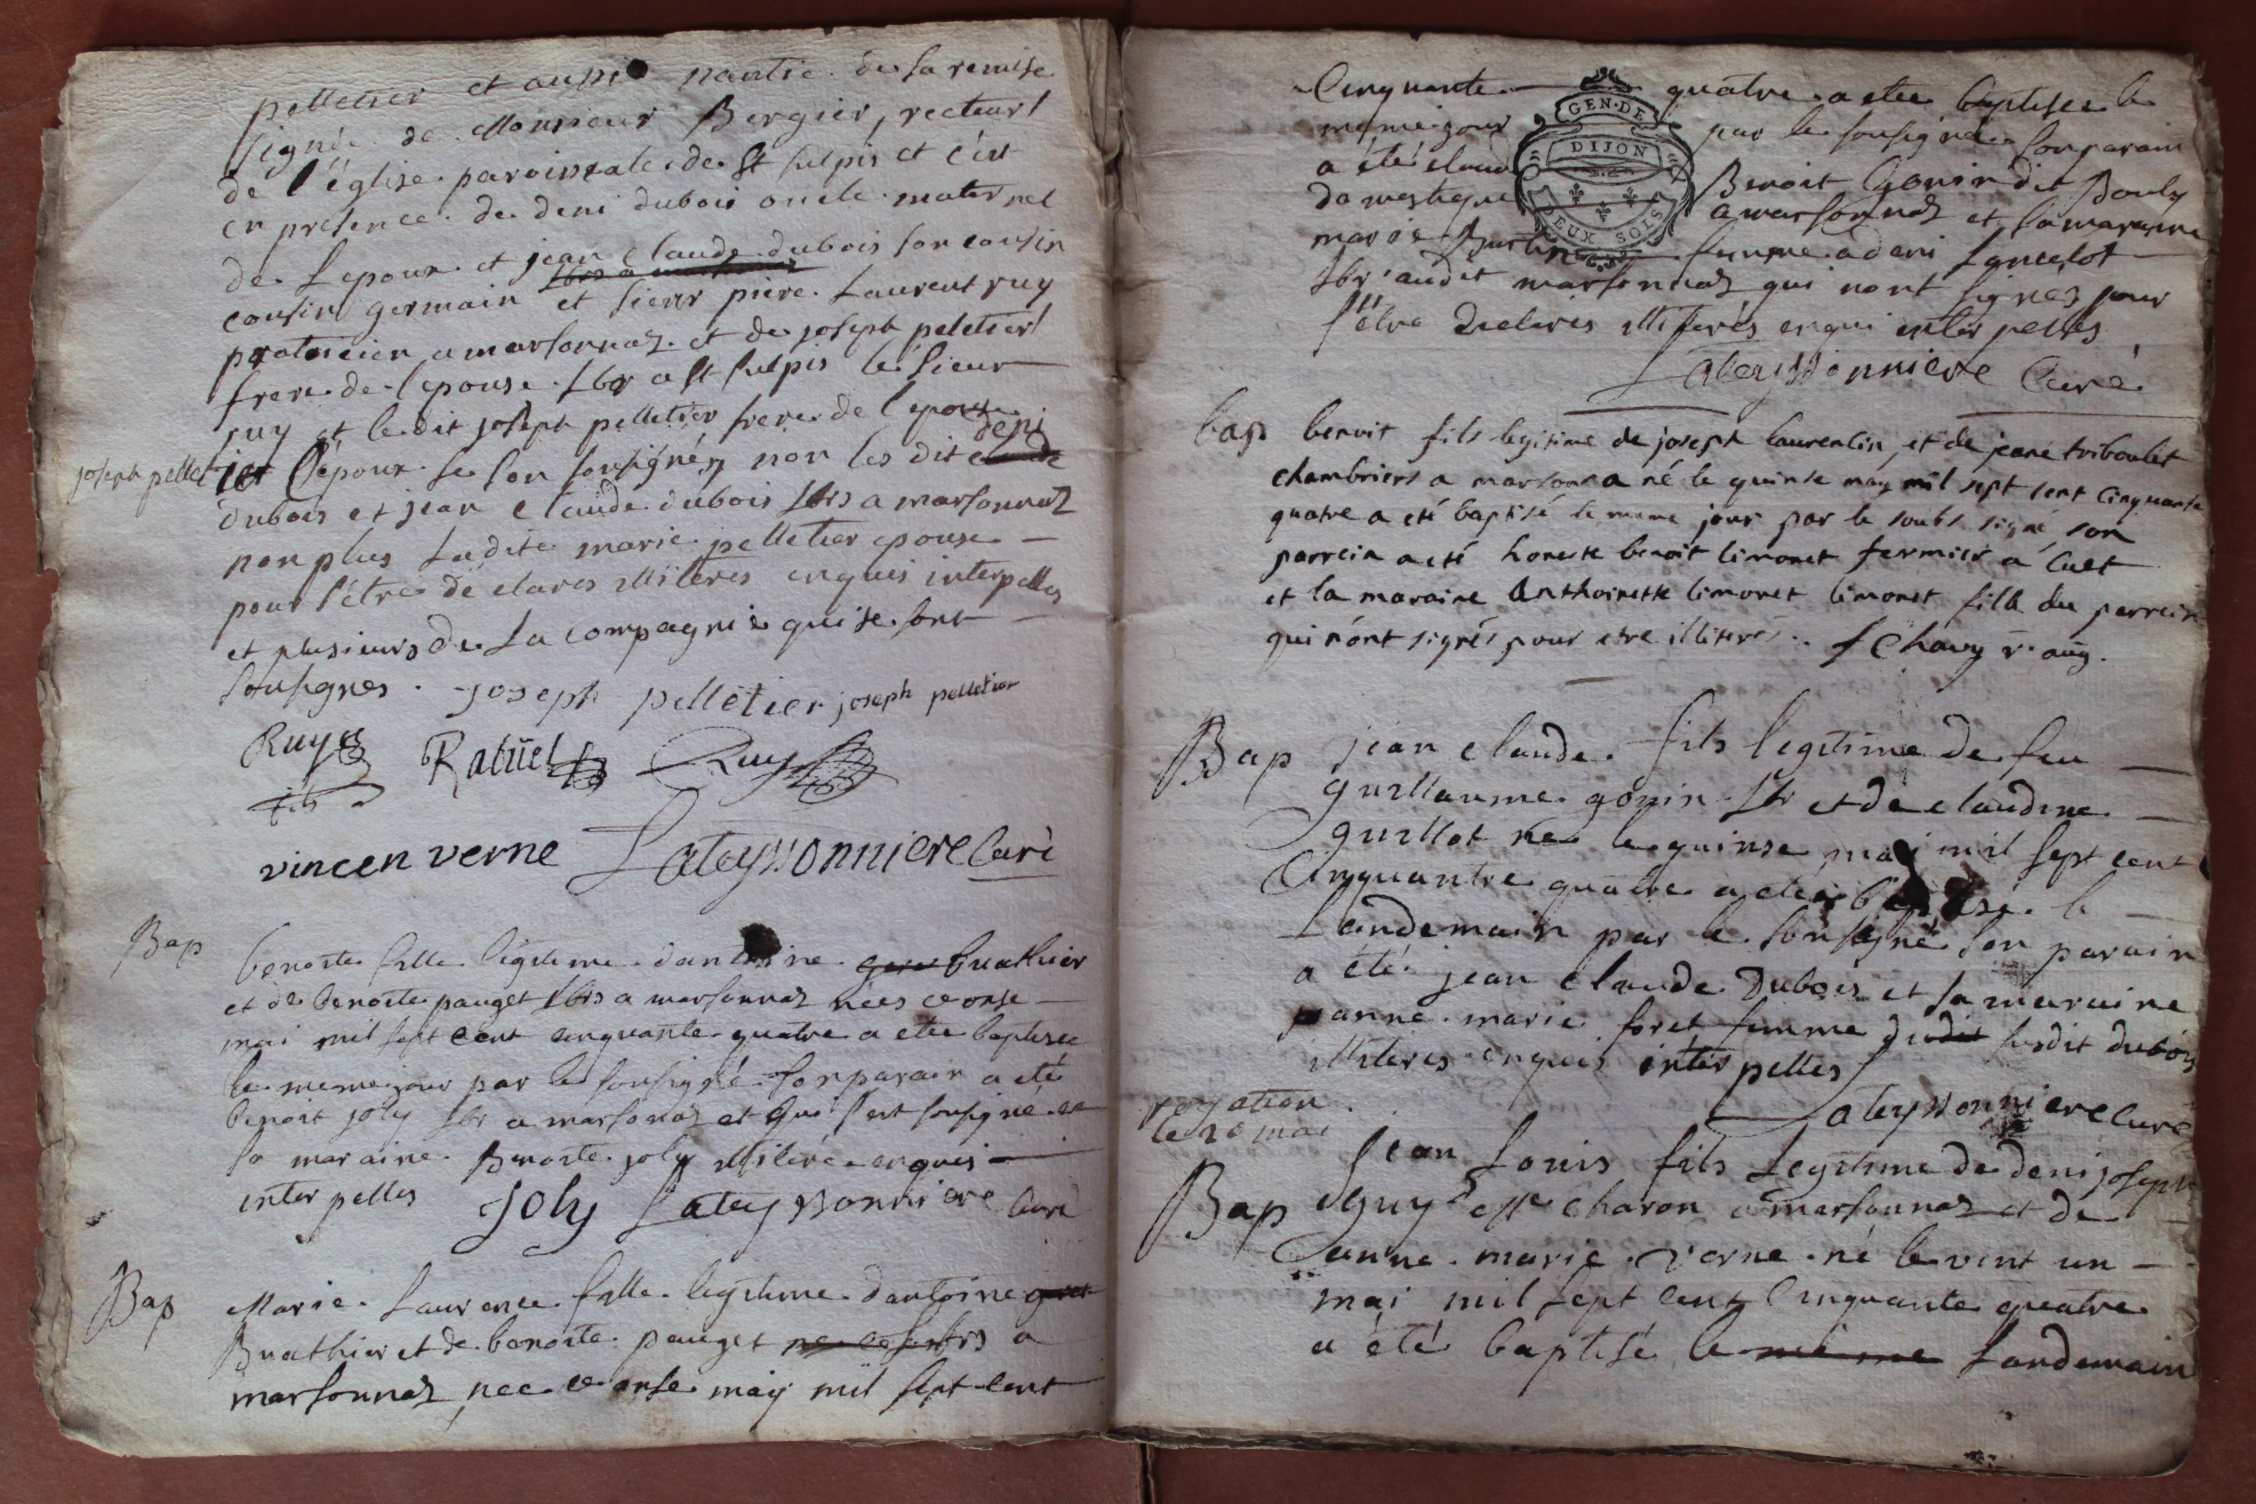 pelletier et aussi nantie de sa remise
signée de Monsieur Bergier, recteur
de l'église paroissale de St sulpis et c'est
en presence de deni dubois oncle maternel
de l'epoux et jean claude dubois son cousin
cousin germain et sieur piere Laurent ruy
praticien a marsonnaz et de joseph peletier
frere de l'epouse lbr a st sulpis le sieur
ruy et le dit joseph pelletier frere de l'epouse
deni
joseph pelletier
et l'époux se son sousignéz non les dit claude
dubois et jean claude dubois lbrs a marsonnaz
non plus ladite marie pelletier epouse
pour s'etre déclares illiteres enquis interpelles
et plusieurs de la compagnie qui se sont
sousignes. joseph pelletier joseph pelletier
Ruy fils Ratüel Ruy
vincen verne Lateyssonniere Curé
Bap
benoite fille légitime d'antoine buathier
et de benoite pauget lbrs a marsonnaz nées ce onse
mai mil sept cent cinquante quatre a etee baptisee
le meme jour par le sousigné son parain a eté
benoit joly lbr a marsonaz et qui s'est sousigné et
sa maraine Benoite joly illiterée enquis
interpelles Joly Lateyssonniere Curé
Bap
Marie Laurence fille legitime d'antoine
Buathier et de benoite pauget lbrs a
marsonnaz nee ce onse maÿ mil sept cent
Cinquante quatre a etee baptisee le
meme jour par le sousigné son parain
a été claude Benoit Gonin dit Bouly
domestique a marsonnaz et sa maraine
marie femme a deni Lancelot
lbr audit marsonnaz qui nont signez pour
s'être declarés illiterés enqui interpelles
Lateyssonniere Curé
GEN. DE
DIJON
DEUX SOLS
bap
benoit fils legitime de joseph laurencin, et de jeane triboulet
chambriers a marsonna né le quinse may mil sept cent cinquante
quatre a eté baptisé le meme jour par le soubs signé, son
parrein a eté honeste benoit limonet fermier a cuet
et la maraine Anthoinette limonet limonet fille du parrein
qui n'ont signés pour etre illiterés. f Chavy r. aug.
Bap
jean claude fils legitime de feu
guillaume gonin lbr et de claudine
guillot né le quinse mai mil sept cent
Cinquante quatre a étée baptisé le
landemain par le sousigné son parain
a été jean claude Dubois et sa maraine
anne marie foret femme dudit susdit dubois
illiteres enquis interpelles
Lateyssonniere Curé
rogation
le 20 mai
Bap
Jean Louis fils Legitime de deni joseph
Guy charon a marsonnaz et de
anne marie verne né le vint un
mai mil sept cent Cinquante quatre
a été baptisé le meme landemain